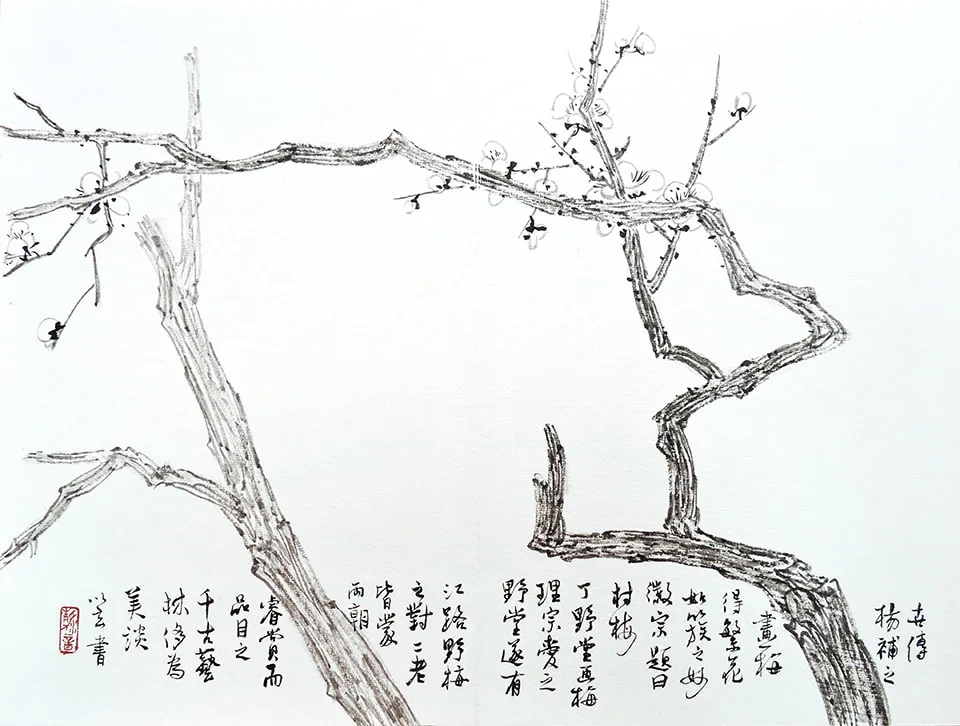 世傳
楊補之
畫梅
得繁花
如簇之妙
徽宗題曰
村梅
丁野堂畫梅
理宗愛之
野堂遂有
江路野梅
之對二老
皆蒙
兩朝
睿賞而
品目之
千古藝
林侈為
美談
書